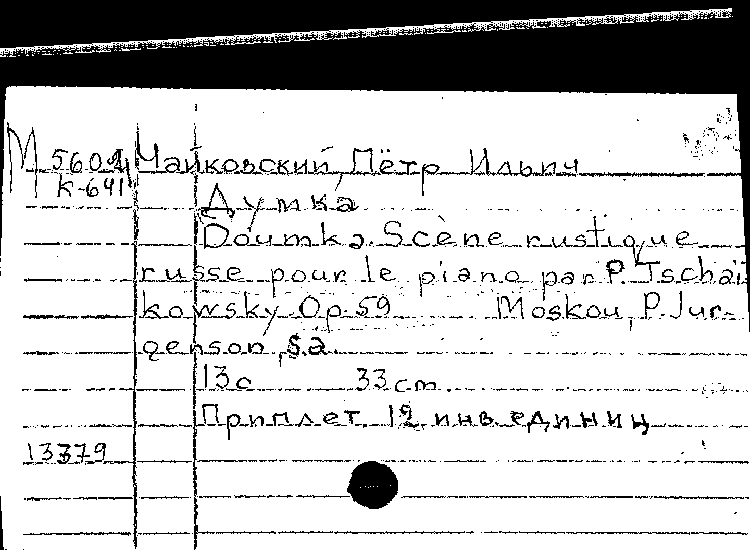 М 5601 Чайковский, Пётр Ильич
К-641
Думка
Doumka. Scène rustique
russe pour le piano par P. Tschaï
kowsky Op. 59 Moskou, P. Jur-
genson, s.a.
13с 33 cm.
Приплет 12 инв. единиц
13379